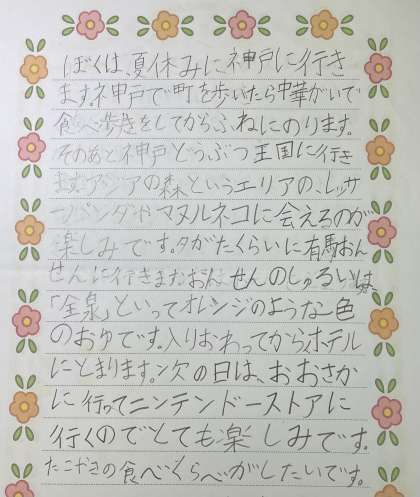 ぼくは、夏休みに神戸に行き
ます。神戸で町を歩いたら中華がいで
食べ歩きをしてからふねにのります。
そのあと神戸どうぶつ王国に行き
ます。アジアの森というエリアの、レッサ
ーパンダやマヌルネコに会えるのが
楽しみです。夕がたくらいに有馬おん
せんに行きます。おんせんのしゅるいは
「金泉」といってオレンジのような色
のおゆです。入りおわってからホテル
にとまります。次の日は、おおさか
に行ってニンテンドーストアに
行くのでとても楽しみです。
たこやきの食べくらべがしたいです。